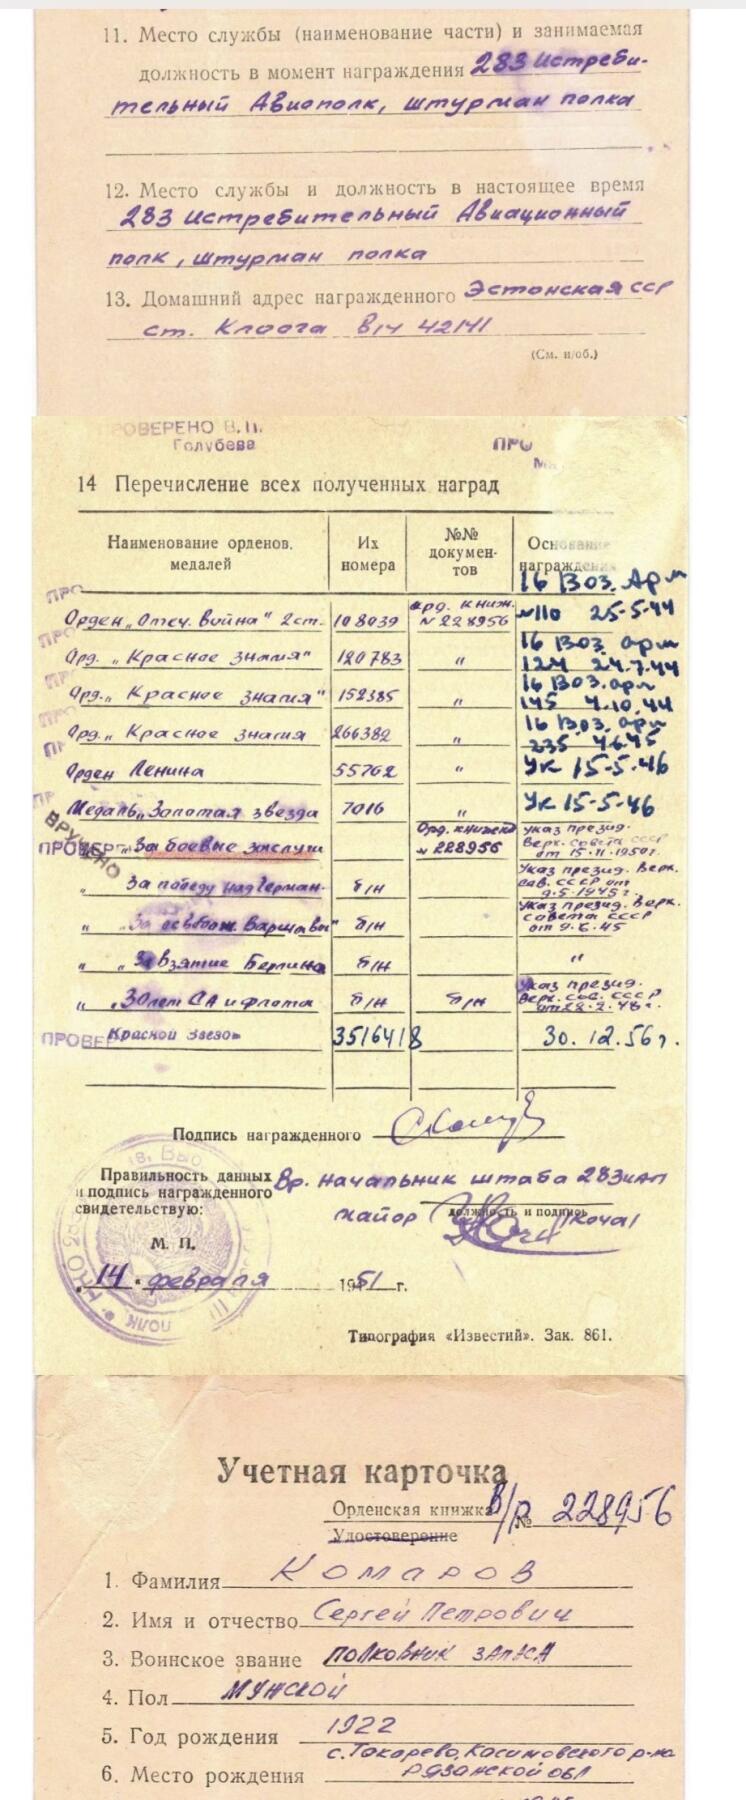 11. Место службы (наименование части) и занимаемая
должность в момент награждения 283 Истреби-
тельный Авиаполк, штурман полка
12. Место службы и должность в настоящее время
283 Истребительный Авиационный
полк, штурман полка
13. Домашний адрес награжденного Эстонская сср
ст. Клоога в/ч 42141
(См. н/об.)
ПРОВЕРЕНО В.П.
Голубева
ПРО
14 Перечисление всех полученных наград
Наименование орденов, медалей Их номера №№ документов Основание награждения
Орден „Отеч. война" 2 ст. 108039 орд. книж. № 228956 16 Воз. Арм №110 25-5-44
Орд. „Красное знамя" 120783 " 16 Воз. арм 124 24.7.44
Орд. „Красное знамя" 152385 " 16 Воз. арм 145 4.10.44
Орд. „Красное знамя 266382 " 16 Воз. арм 235 4.6.45
Орден Ленина 55762 " Ук 15-5-46
Медаль „Золотая звезда 7016 " Ук 15-5-46
ВРУЧЕНО
„За боевые заслуги Орд. книжка № 228956 указ презид. Верх. совета ссср от 15.11.1950г.
" За победу над Герман. б/н Указ презид. Верх. сов. ссср от 9.5.1945г.
" „За освобож. Варшавы" б/н Указ презид. Верх. совета ссср от 9.6.45
" „За Взятие Берлина б/н "
" „30 лет СА и флота б/н б/н Указ презид. Верх. сов. ссср от 22.2.48г.
ПРОВЕР
Красной Звезды 3516418 30.12.56г.
Подпись награжденного
Правильность данных и подпись награжденного свидетельствую:
Вр. начальник штаба 283 иап
майор
должность и подпись
М. П.
„14" февраля 1951 г.
Типография «Известий». Зак. 861.
Учетная карточка
Орденская книжка
Удостоверение
В/Р № 228956
1. Фамилия Комаров
2. Имя и отчество Сергей Петрович
3. Воинское звание полковник запаса
4. Пол мужской
5. Год рождения 1922
с. Токарево, Касимовского р-на
6. Место рождения Рязанской обл